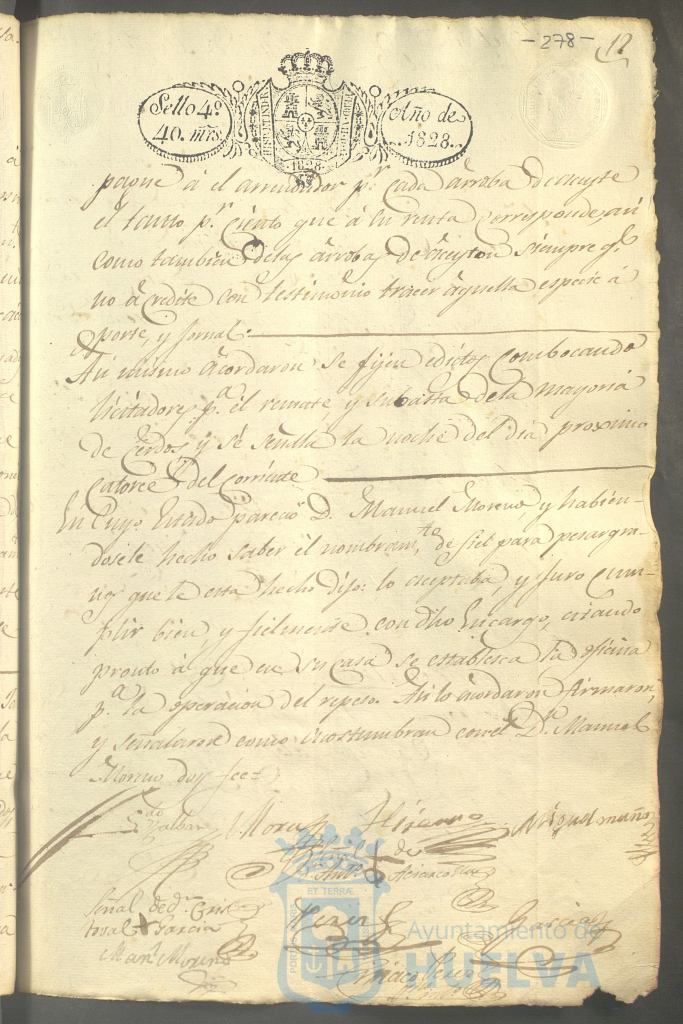 -278- 12
Sello 4º
40. mrs.
Año de
1828.
HISPANIARUM
1828
paque á el arrendador pr. cada arroba de aceyte
el tanto pr. ciento que á su renta corresponde, así
como tambien delas arrobas de aceyton siempre q.
no acredite con testimonio traer aquella especie á
porte, y jornal.
Asi mismo acordaron se fijen edictos combocando
licitadores pª. el remate y subasta dela mayoria
de Cerdos y se señala la noche del dia proximo
Catorce del corriente
En Cuyo Estado pareció D. Manuel Moreno y habien-
dosele hecho saber el nombramto. de fiel para pesar gra-
nos que le esta hecho dijo: lo aceptaba, y juro cum-
plir bien y fielmente con dho Encargo, estando
pronto á que en su casa se establesca la oficina
pª. la operacion del repeso. Asi lo acordaron firmaron,
y señalaron como acostumbran con el Dn. Manuel
Moreno doy fee=
Mora Hierro Miguel muño
de
Señal de dn. Cris
toval X Garcia
Manl. Moreno
Garcia
PORTUS
ET TERRÆ
Ayuntamiento de
HUELVA